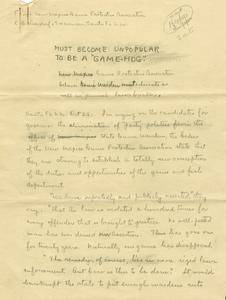 New Mexico Game Protective Association
MUST BECOME UNPOPULAR
TO BE A "GAME-HOG"
New Mexico Game Protective Association
believes Game Warden must educate as
well as
Santa Fe In urging on the candidates for
governor the elimination of party politics from the
office of State Game Warden, the bodies
of the New Mexico Game Protective Association state that
they are striving to establish a totally new conception
of the duties and opportunities of the game and fish
department.
"We have repeatedly and publicly asserted" they
say, "that the law is violated a hundred times for
every offender that is brought to justice. No well-posted
man has ever denied our assertion. This has gone on
for twenty years. Naturally our game has disappeared.
"The remedy, of course, lies in more rigid law
enforcement. But how is this to be done? It would
bankrupt the state to put enough wardens out